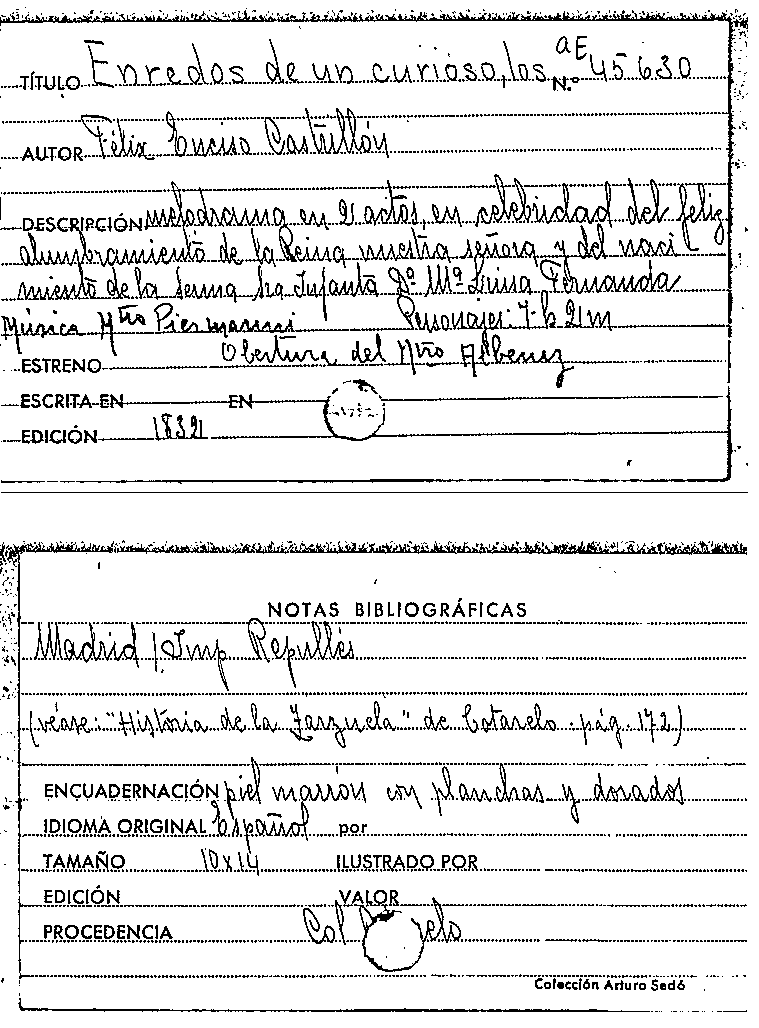 TÍTULO Enredos de un curioso, los aE N.º 45630
AUTOR Félix Enciso Castrillón
DESCRIPCIÓN melodrama en 2 actos, en celebridad del feliz
alumbramiento de la Reina nuestra señora y del naci-
miento de la Serma Sra Infanta Dª Mª Luisa Fernanda
Música Mtro Piermarini Personajes: 7 h 2 m
ESTRENO Obertura del Mtro Albeniz
ESCRITA EN EN
EDICIÓN 1832
NOTAS BIBLIOGRÁFICAS
Madrid / Imp Repullés
(véase: "Historia de la Zarzuela" de Cotarelo. pág. 172)
ENCUADERNACIÓN piel marrón con planchas y dorados
IDIOMA ORIGINAL Español por
TAMAÑO 10x14 ILUSTRADO POR
EDICIÓN VALOR
PROCEDENCIA Col
Colección Arturo Sedó